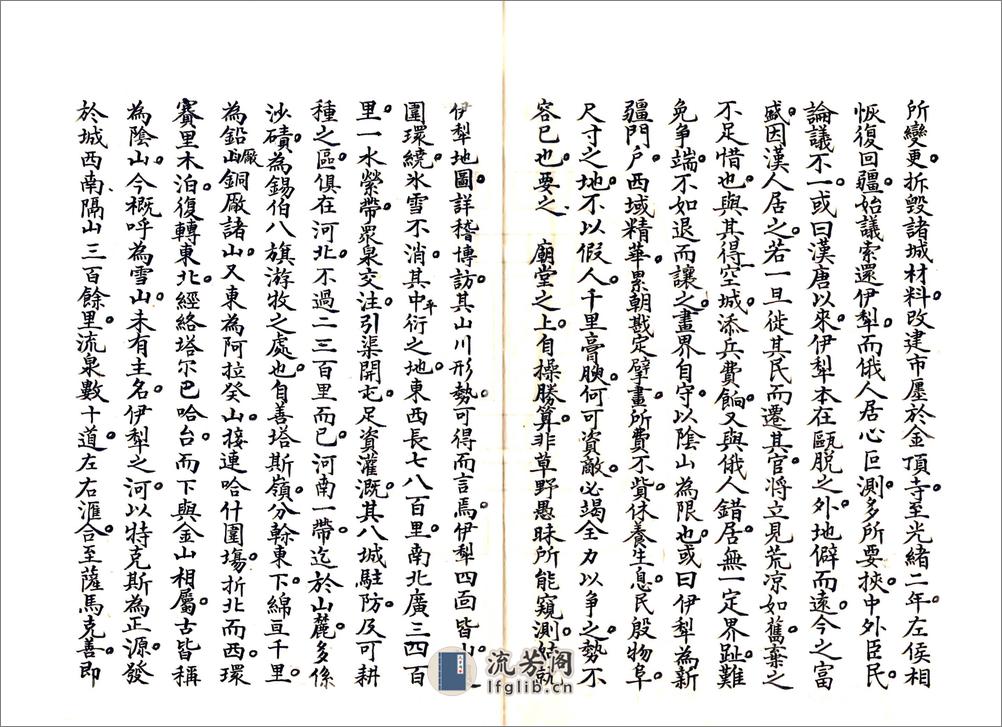 所變更。拆毀諸城材料。改建市廛於金頂寺。至光緒二年。左侯相
恢復回疆。始議索還伊犁。而俄人居心叵測。多所要挾。中外臣民。
論議不一。或曰漢唐以來。伊犁本在甌脫之外。地僻而遠。今之富
盛。因漢人居之。若一旦徙其民而遷其官。將立見荒凉如舊。棄之
不足惜也。與其得空城。添兵費餉。又與俄人錯居。無一定界趾。難
免爭端。不如退而讓之。畫界自守。以陰山為限也。或曰伊犁為新
疆門戶。西域精華。累朝戡定。擘畫所費不貲。休養生息。民殷物阜。
尺寸之地。不以假人。千里膏腴。何可資敵。必竭全力以爭之。勢不
容已也。要之、廟堂之上。自操勝算。非草野愚昧所能窺測。
伊犁地圖。詳稽博訪。其山川形勢。可得而言焉。伊犁四面皆山
圍環繞。氷雪不消。其中平衍之地。東西長七八百里。南北廣三四百
里。一水縈帶。眾泉交注。引渠開屯。足資灌溉。其八城駐防。及可耕
種之區。俱在河北。不過二三百里而已。河南一帶。迄於山麓。多係
沙磧。為錫伯八旗游牧之處也。自善塔斯嶺。分榦東下。綿亘千里。
為鉛廠山銅廠諸山。又東為阿拉癸山。接連哈什圍場。折北而西。環
賽里木泊。復轉東北。經絡塔尔巴哈台。而下與金山相屬。古皆稱
為陰山。今概呼為雪山。未有主名。伊犁之河。以特克斯為正源。發
於城西南、隔山三百餘里。流泉數十道。左右滙合。至薩馬克善。即
流芳阁
lfglib.cn